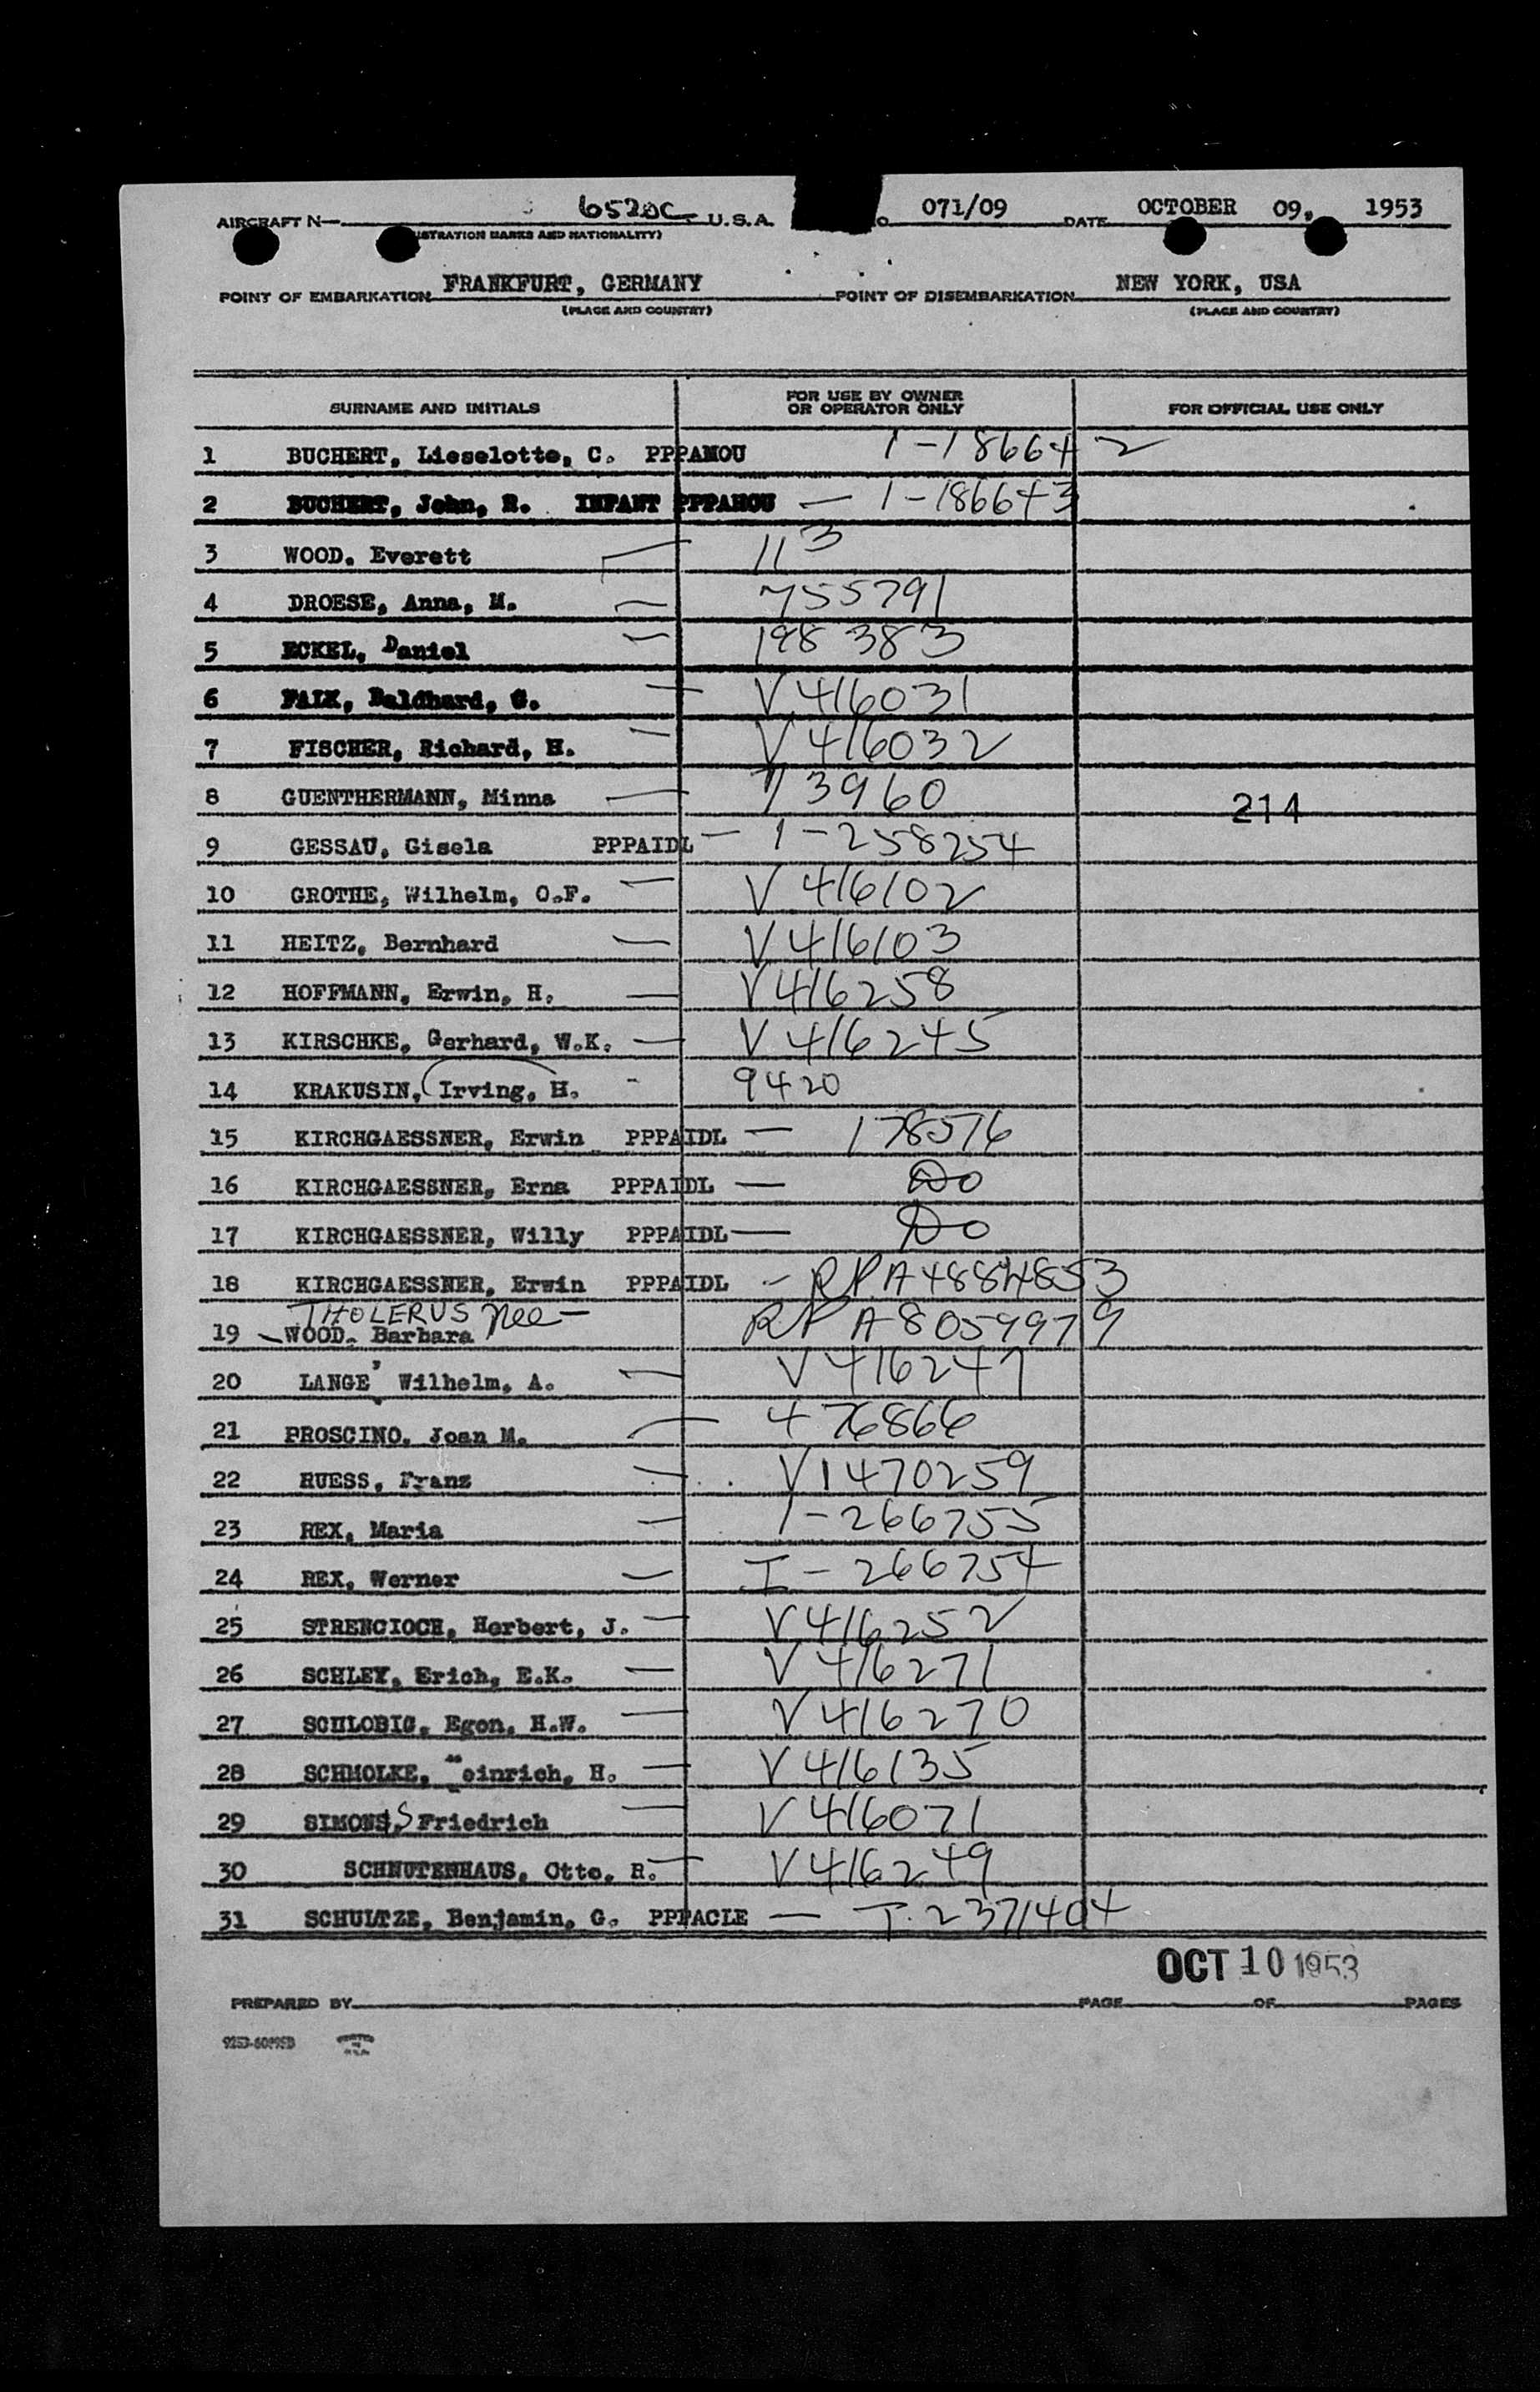 AIRCRAFT N— 6520C U.S.A. O. 071/09 DATE OCTOBER 09, 1953
ISTRATION MARKS AND NATIONALITY)
POINT OF EMBARKATION FRANKFURT, GERMANY POINT OF DISEMBARKATION NEW YORK, USA
(PLACE AND COUNTRY) (PLACE AND COUNTRY)
SURNAME AND INITIALS FOR USE BY OWNER OR OPERATOR ONLY FOR OFFICIAL USE ONLY
1 BUCHERT, Lieselotte, C. PPPAMOU 1-186642
2 BUCHERT, John, R. INFANT PPPAMOU — 1-186643
3 WOOD. Everett — 113
4 DROESE, Anna, M. — 755791
5 ECKEL, Daniel — 198383
6 FALK, Baldhard, G. — V 416031
7 FISCHER, Richard, H. — V 416032
8 GUENTHERMANN, Minna — 73960 214
9 GESSAU, Gisela PPPAIDL — 1-258254
10 GROTHE, Wilhelm, O.F. — V 416102
11 HEITZ, Bernhard — V 416103
12 HOFFMANN, Erwin, H. — V 416258
13 KIRSCHKE, Gerhard, W.K. — V 416245
14 KRAKUSIN, Irving, H. - 9420
15 KIRCHGAESSNER, Erwin PPPAIDL — 178576
16 KIRCHGAESSNER, Erna PPPAIDL — Do
17 KIRCHGAESSNER, Willy PPPAIDL — Do
18 KIRCHGAESSNER, Erwin PPPAIDL - RP.A4884853
THOLERUS nee —
19 WOOD. Barbara RP A8059979
20 LANGE, Wilhelm, A. — V 416247
21 PROSCINO, Joan M. — 476866
22 RUESS, Franz — V1470259
23 REX, Maria — 1-266755
24 REX, Werner — I-266754
25 STRENCIOCH, Herbert, J. — V 416252
26 SCHLEY, Erich, E.K. — V 416271
27 SCHLOBIG, Egon, H.W. — V 416270
28 SCHMOLKE, Heinrich, H. — V 416135
29 SIMONS, Friedrich — V 416071
30 SCHNUTENHAUS, Otto, R. — V 416249
31 SCHULTZE, Benjamin, G. PPPACLE — I.2371404
OCT 10 1953
PREPARED BY PAGE OF PAGES